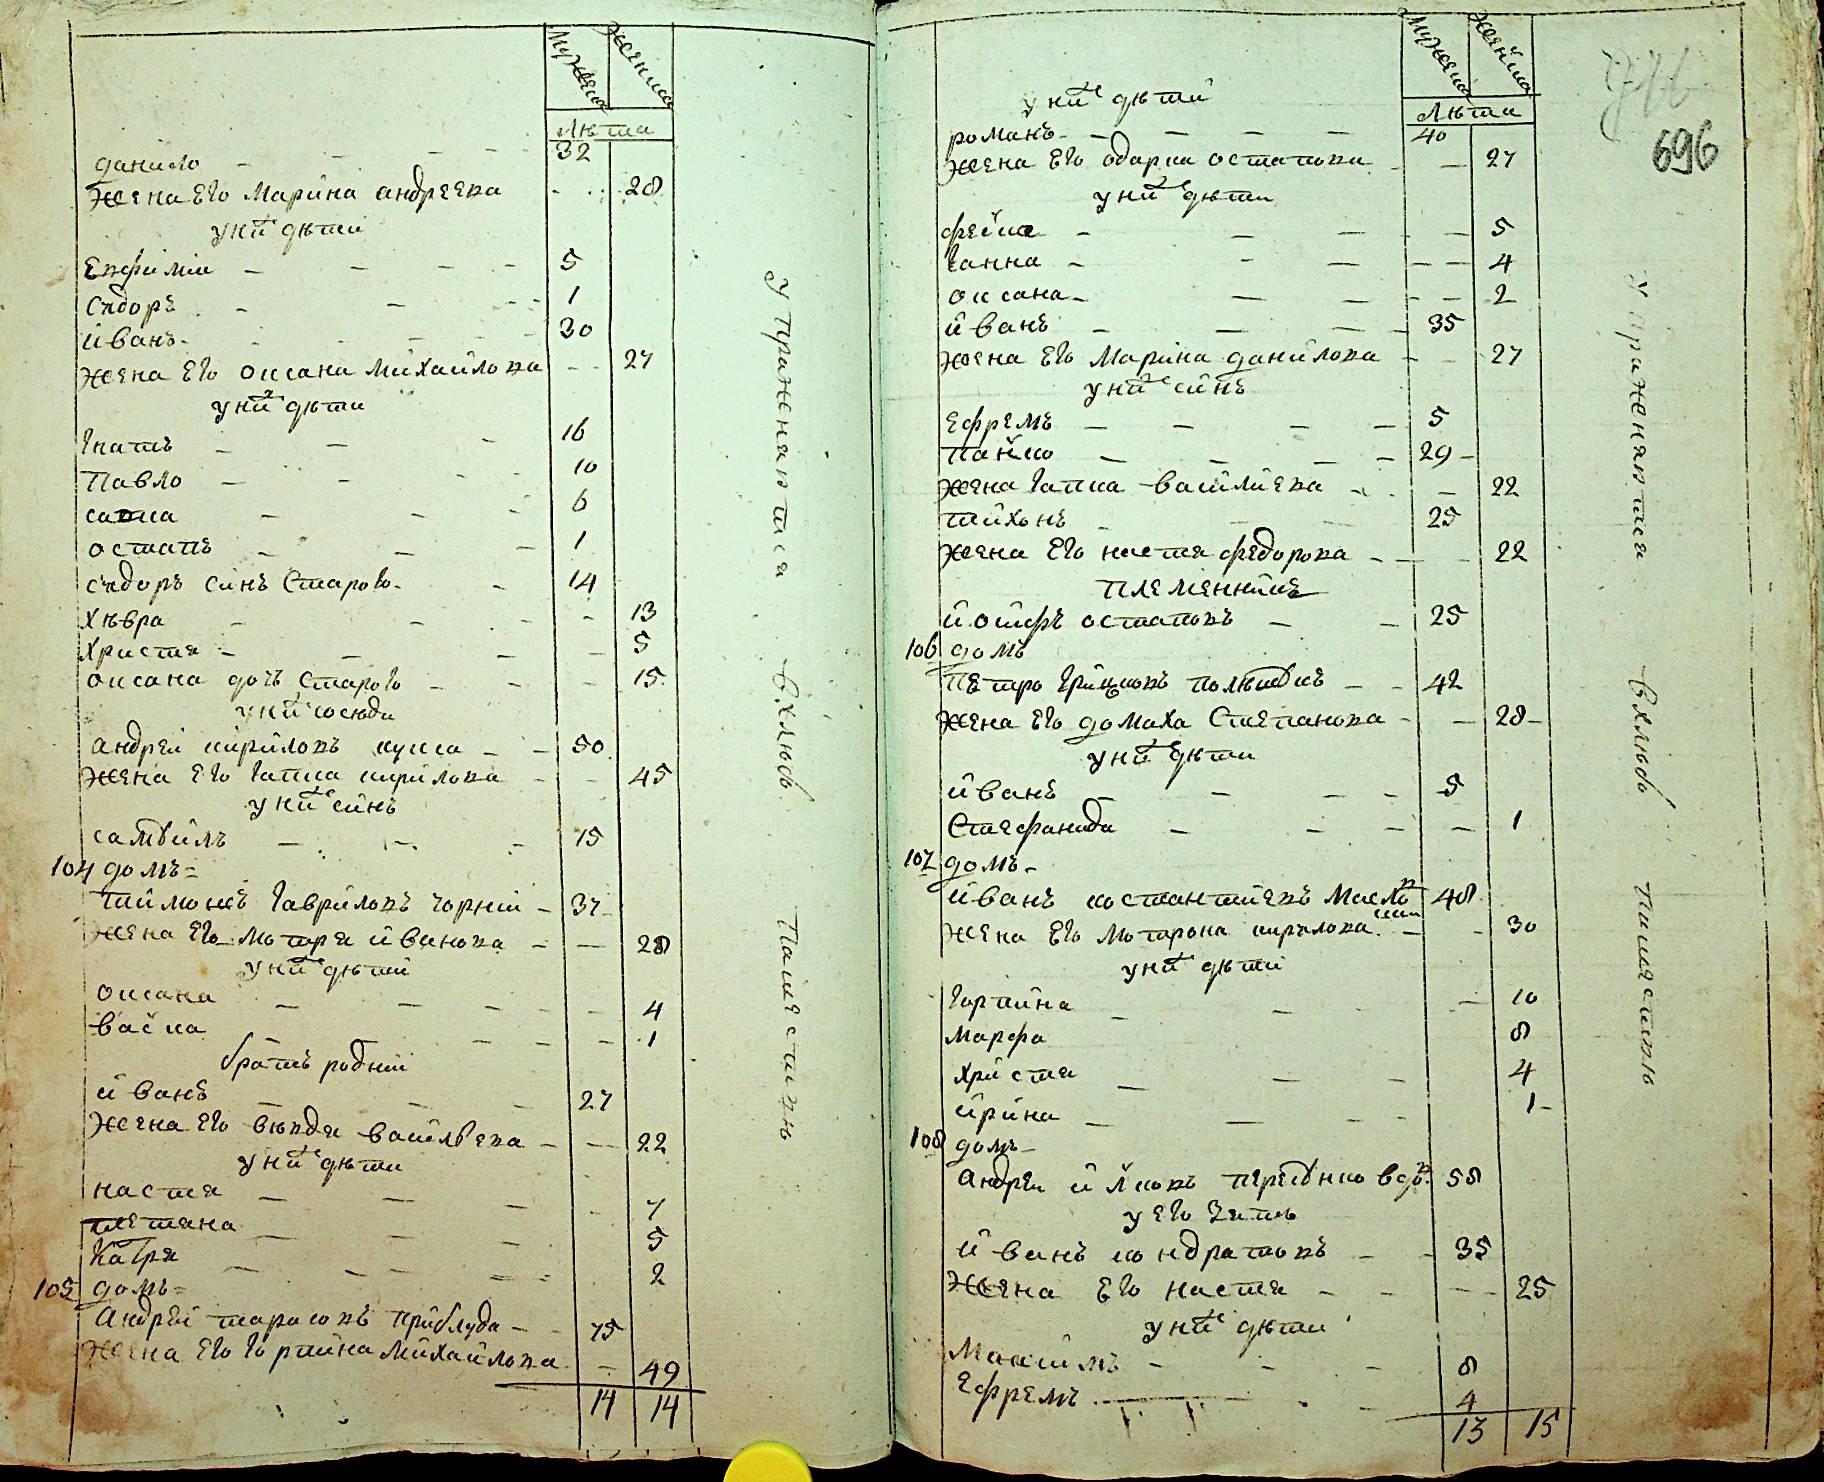 Мужеска Женска
Лѣта
данило 32
жена его Марина андреева 28
у них дѣти
Евфимiи 5
Сѣдоръ 1
иванъ 30
жена его оксана михаилова 27
у них дѣти
Iгнатъ 16
Павло 10
савка 6
остапъ 1
сѣдоръ синъ Старого 14
хѣвра 13
христя 5
оксана дочь Старого 15
у них сосюди
андреи кириловъ куцка 50
жена его гапка кирилова 45
у них синъ
самѹилъ 15
104 домъ
тимошъ гавриловъ чорнiи 37
жена его мотря иванова 28
у них дѣти
оксана 4
васка 1
братъ роднiи
иванъ 27
жена его вѣвдя василѣева 22
у них дѣти
настя 7
тетяна 5
Катря 2
105 домъ
андреи тарасовъ приблуда 75
жена его горпина михаилова 49
14 14
упражняются в хлѣбопашествѣ
696
Мужеска Женска
Лѣта
у них дѣти
романъ 40
жена его одарка остапова 27
у них дѣти
феска 5
ганна 4
оксана 2
иванъ 35
жена его марина данилова 27
у них синъ
ефремъ 5
панко 29
жена гапка василиева 22
тихонъ 25
жена его настя федорова 22
племенникъ
иосифъ остаповъ 25
106 домъ
петро грицковъ 42
жена его домаха степанова 28
у них дѣти
иванъ 5
Стефанида 1
107 домъ
иванъ костантиевъ Масло 48
жена его мотрона кирилова 30
у них дѣти
горпина 10
марфа 8
христя 4
ирина 1
108 домъ
андреи 58
у его зять
иванъ кондратовъ 35
жена его настя 25
у них дѣти
Максимъ 8
ефремъ 4
13 15
упражняются в хлѣбопашествѣ